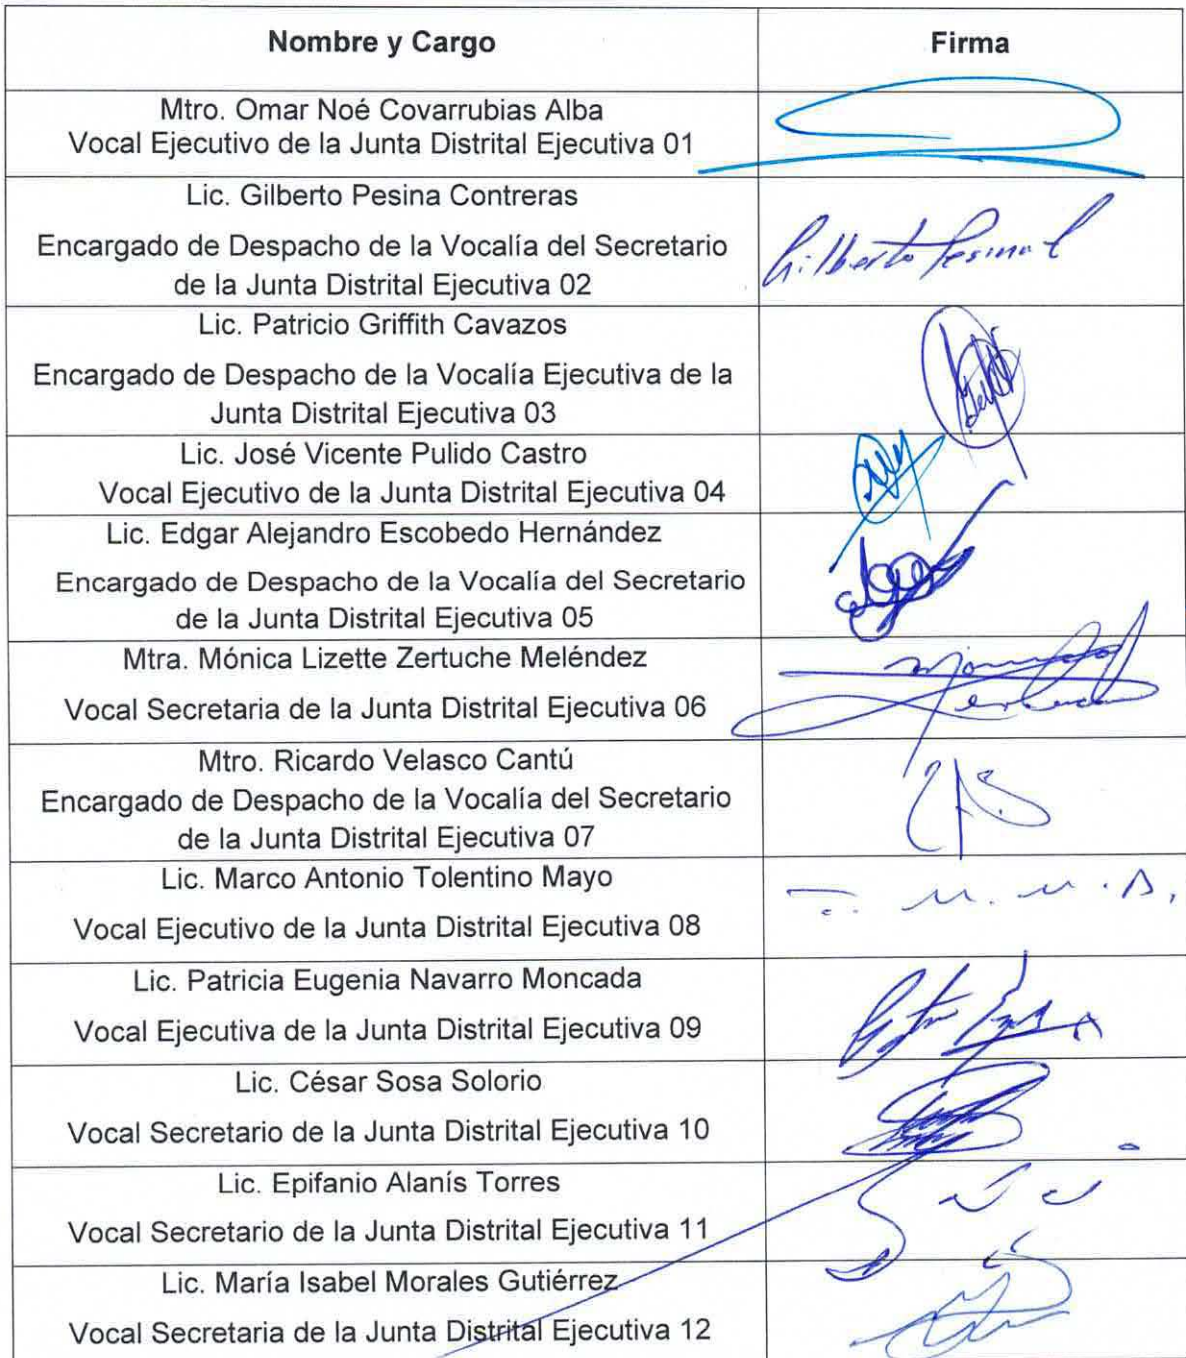 Nombre y Cargo
Firma
Mtro. Omar Noé Covarrubias Alba
Vocal Ejecutivo de la Junta Distrital Ejecutiva 01
Lic. Gilberto Pesina Contreras
Encargado de Despacho de la Vocalía del Secretario
de la Junta Distrital Ejecutiva 02
Gilberto Pesina C
Lic. Patricio Griffith Cavazos
Encargado de Despacho de la Vocalía Ejecutiva de la
Junta Distrital Ejecutiva 03
Lic. José Vicente Pulido Castro
Vocal Ejecutivo de la Junta Distrital Ejecutiva 04
Lic. Edgar Alejandro Escobedo Hernández
Encargado de Despacho de la Vocalía del Secretario
de la Junta Distrital Ejecutiva 05
Mtra. Mónica Lizette Zertuche Meléndez
Vocal Secretaria de la Junta Distrital Ejecutiva 06
Mtro. Ricardo Velasco Cantú
Encargado de Despacho de la Vocalía del Secretario
de la Junta Distrital Ejecutiva 07
Lic. Marco Antonio Tolentino Mayo
Vocal Ejecutivo de la Junta Distrital Ejecutiva 08
Lic. Patricia Eugenia Navarro Moncada
Vocal Ejecutiva de la Junta Distrital Ejecutiva 09
Lic. César Sosa Solorio
Vocal Secretario de la Junta Distrital Ejecutiva 10
Lic. Epifanio Alanís Torres
Vocal Secretario de la Junta Distrital Ejecutiva 11
Lic. María Isabel Morales Gutiérrez
Vocal Secretaria de la Junta Distrital Ejecutiva 12